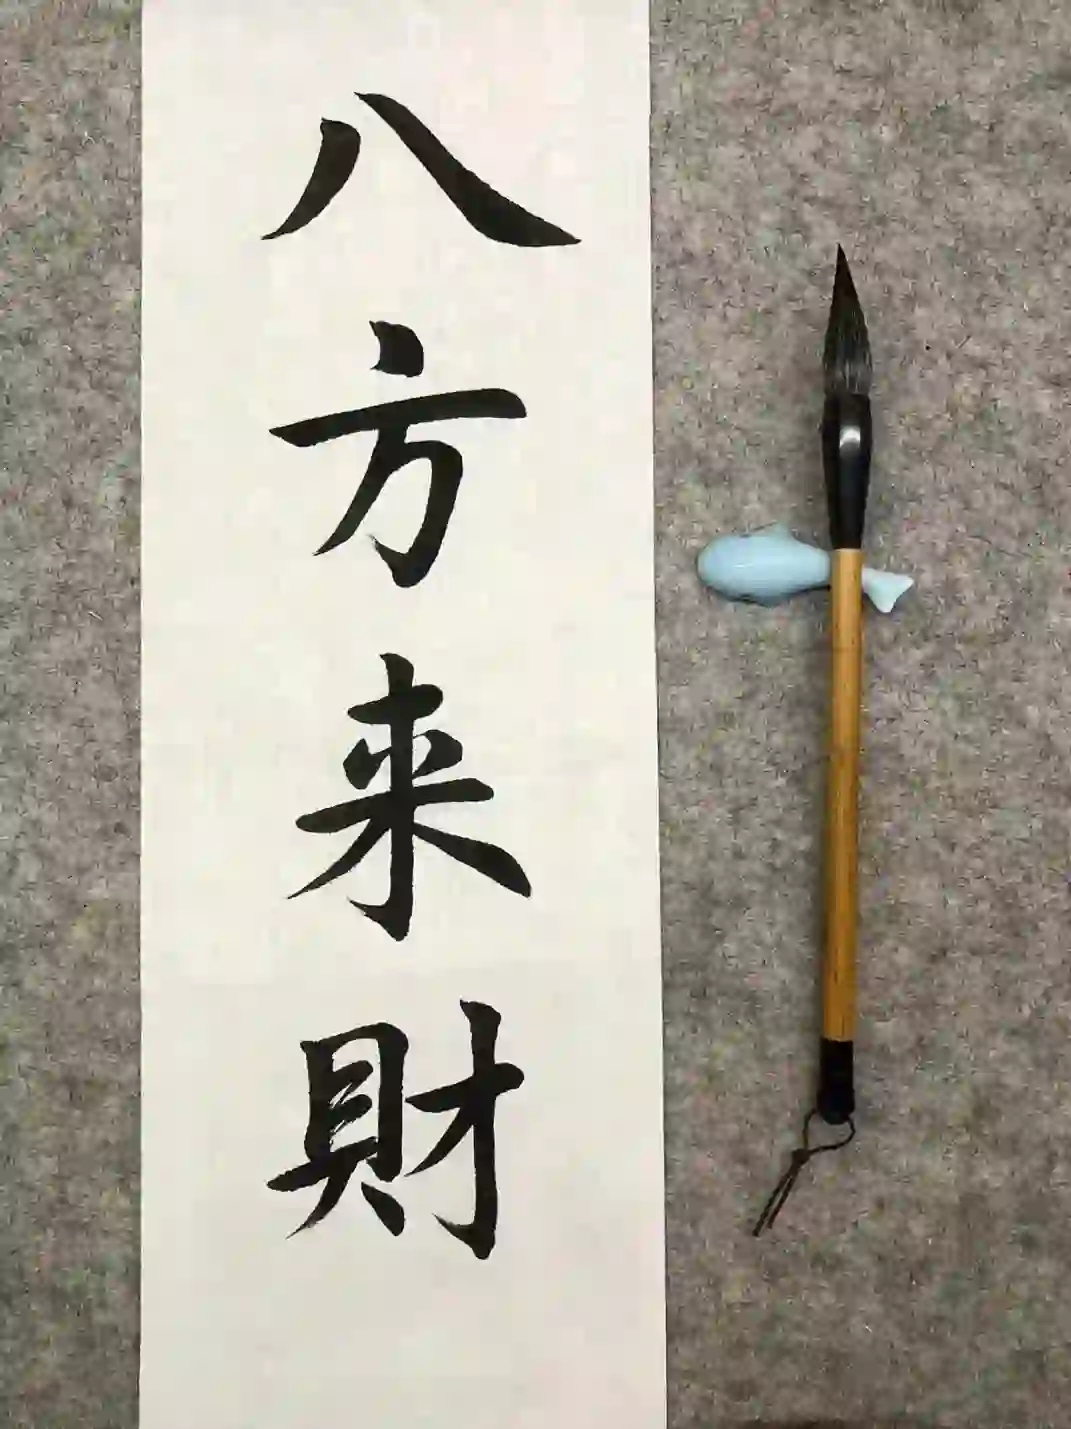 八方来財